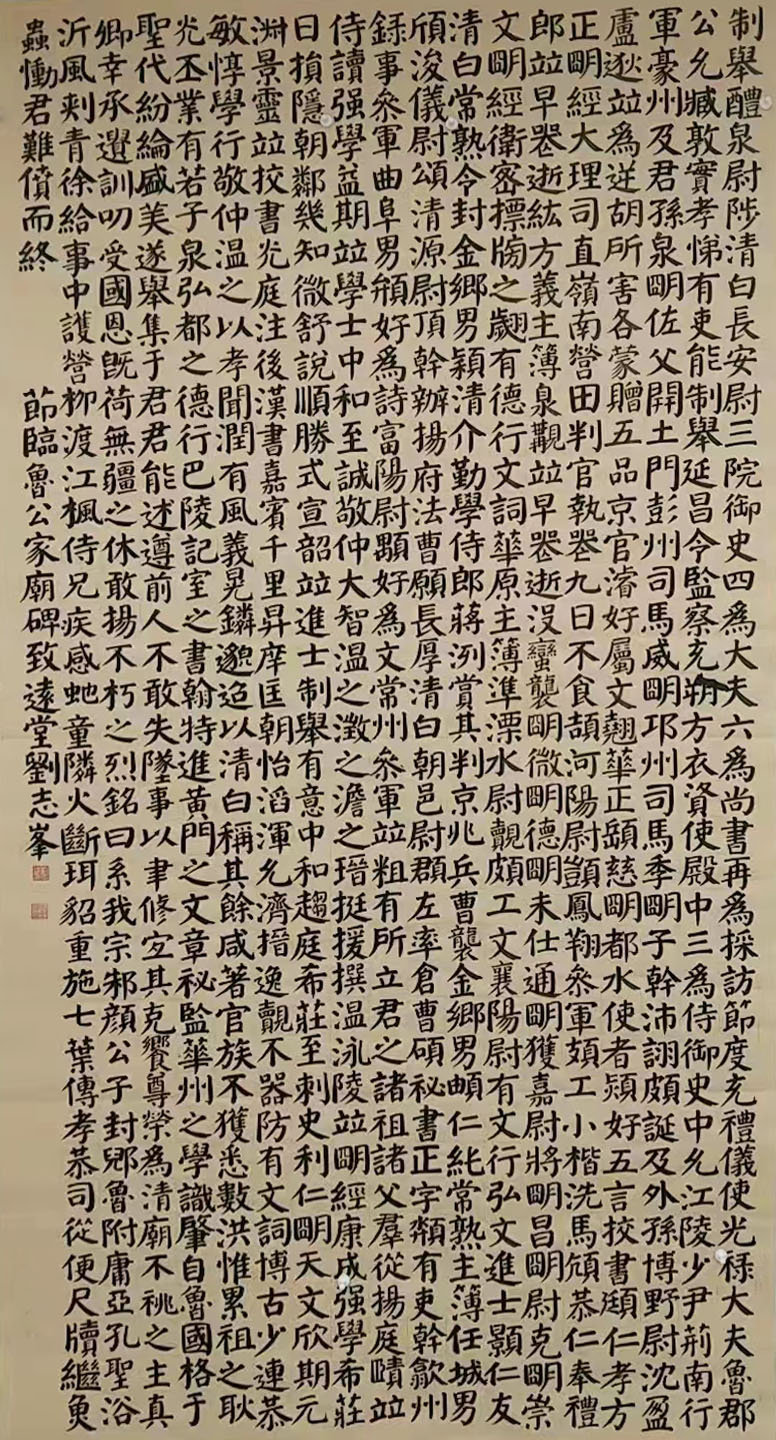 制舉醴泉尉陟清白長安尉三院御史四為大夫六為尚書再為採訪節度充禮儀使光祿大夫魯郡
公允臧敦實孝悌有吏能制舉延昌令監察充朔方衣資使殿中三為侍御史中允江陵少尹荊南行
軍豪州及君孫泉明佐父開土門彭州司馬威明邛州司馬季明子幹沛詡頗誕及外孫博野尉沈盈
盧逖並為逆胡所害各蒙贈五品京官濬好屬文翹華正頤慈明都水使者熲好五言校書頲仁孝方
正明經大理司直嶺南營田判官執喪九日不食頡河陽尉顗鳳翔叅軍頍工小楷洗馬頎恭仁奉禮
郎並早喪逝紘方義主簿泉覯並早喪逝沒蠻襲明微明德明未仕通明獲嘉尉將明昌明尉克明崇
文明經衛密摽牓之翽有德行文詞華原主簿準漂水尉覿頗工文襄陽尉有文行弘文進士顯仁友
清白常熟令封金鄉男穎清介勤學侍郎蔣洌賞其判京兆兵曹襲金鄉男頔仁純常熟主簿任城男
頎浚儀尉頌清源尉頂幹辦揚府法曹願長厚清白朝邑尉頵左率倉曹碩秘書正字類有吏幹歙州
錄事叅軍曲阜男頖好為詩富陽尉顒好為文常州叅軍並粗有所立君之諸祖諸父羣從揚庭䫖並
侍讀强學益期並學士中和至誠敬仲大智溫之澂之澹之瑨挺援撰溫泳陵並明經康成强學希莊
日損隱朝鄰幾知微舒說順勝式宣韶並進士制舉有意中和趨庭希莊至刺史利仁明天文欣期元
淵景靈並挍書光庭注後漢書嘉賓千里昇庠匡朝怡滔渾允濟搢逸覿不器防有文詞博古少連恭
敏惇學行敬仲溫之以孝聞潤有風義晃鏻邈迨以清白稱其餘咸著官族不獲悉數洪惟累祖之耿
光丕業有若子泉弘都之德行巴陵記室之書翰特進黃門之文章秘監華州之學識肇自魯國格于
聖代紛綸盛美遂舉集于君君能述遵前人不敢失墜事以聿修宏其克饗尊榮為清廟不祧之主真
卿幸承選訓叨受國恩既荷無疆之休敢揚不朽之烈銘曰系我宗邾顏公子封郳魯附庸亞孔聖浴
沂風刺青徐給事中護營柳渡江楓侍兄疾感虵童隣火斷珥貂重施七葉傳孝恭司從便尺牘繼臾
蟲慟君難償而終
節臨魯公家廟碑致遠堂劉志峯